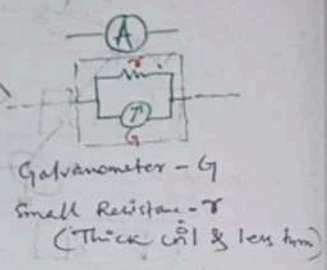 A
r
G
Galvanometer - G
Small Resistance - r
(Thick coil & less turn)